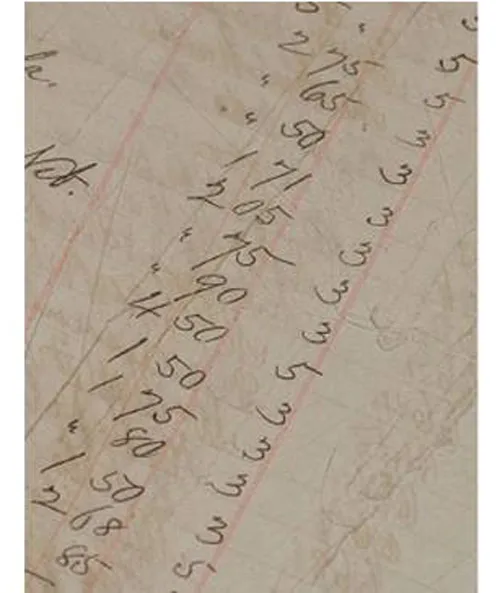 2 75 5
" 65 3
" 50 3
la. 1 71 3
2 05 3
Net. " 75 3
" 90 3
4 50 5
1 50 3
1 75 3
" 80 3
1 50 3
2 68 5
1 85